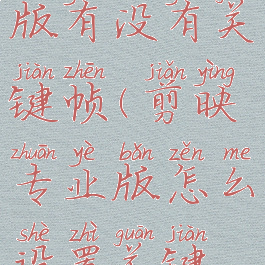 版有没有关
jiàn zhēn jiǎn yìng
键帧(剪映
zhuān yè bǎn zěn me
专业版怎么
shè zhì guān jiàn
设置关键